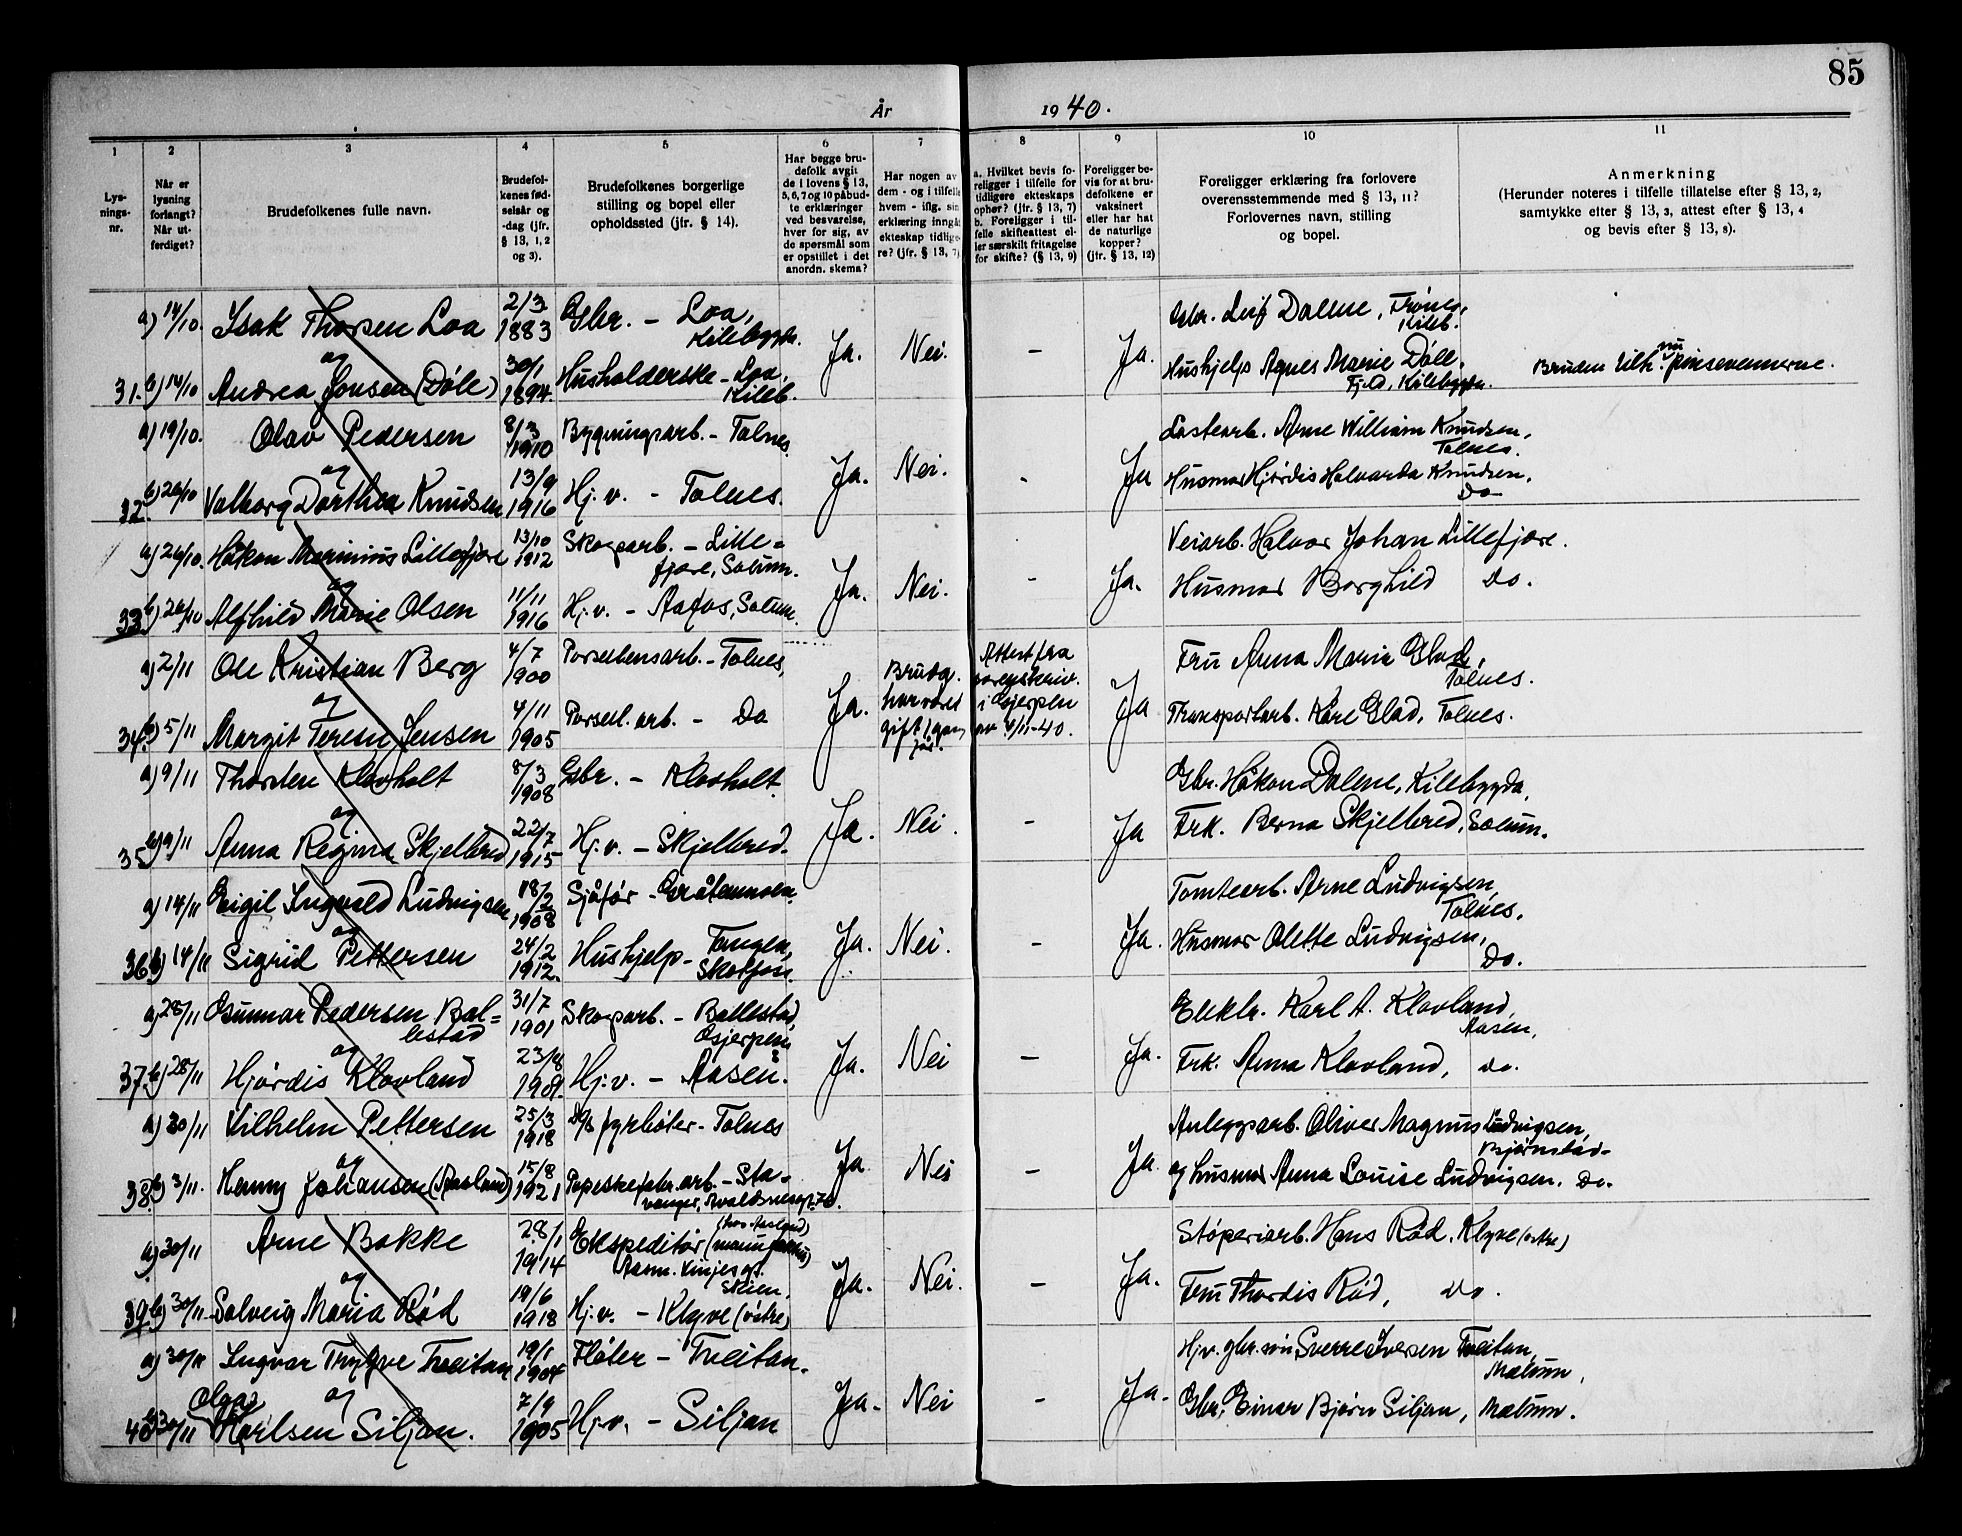 85
År 1940.
1 2 3 4 5 6 7 8 9 10 11
Lysnings-nr.
Når er lysning forlangt? Når utferdiget?
Brudefolkenes fulle navn.
Brudefolkenes fødselsår og -dag (jfr. § 13, 1, 2 og 3).
Brudefolkenes borgerlige stilling og bopel eller opholdssted (jfr. § 14).
Har begge brudefolk avgit de i lovens § 13, 5, 6, 7 og 10 påbudte erklæringer ved besvarelse, hver for sig, av de spørsmål som er opstillet i det anordn. skema?
Har nogen av dem - og i tilfelle hvem - iflg. sin erklæring inngått ekteskap tidligere? (jfr. § 13, 7)
a. Hvilket bevis foreligger i tilfelle for tidligere ekteskaps ophør? (jfr. § 13, 7) b. Foreligger i tilfelle skifteattest eller særskilt fritagelse for skifte? (§ 13, 9)
Foreligger bevis for at brudefolkene er vaksinert eller har hat de naturlige kopper? (jfr. § 13, 12)
Foreligger erklæring fra forlovere overensstemmende med § 13, 11? Forlovernes navn, stilling og bopel.
Anmerkning (Herunder noteres i tilfelle tillatelse efter § 13, 2, samtykke efter § 13, 3, attest efter § 13, 4 og bevis efter § 13, 8).
a) 14/10. Isak Thorsen Loa 2/3 1883 Gbr. - Loa, Kilebygda. Gbr. Leif Dalene, Kileb.
og Ja. Nei. - Ja.
31. b) 14/10 Andrea Jonsen (Døle) 30/1 1894. Husholderske - Loa, Kileb. Hushjelp Agnes Marie Døle, Kilebygda. Bruden tilh. nu pinsevennerne.
a) 19/10. Olav Pedersen 8/3 1910 Bygningsarb. - Tolnes. Lastearb. Arne William Knudsen, Tolnes.
og Ja. Nei. - Ja
32. b) 26/10 Valborg Dorthea Knudsen 13/9 1916 Hj.v. - Tolnes. Husmor Hjørdis Halvarda Knudsen. Do
a) 26/10. Håkon Marinius Lillefjære 13/10 1912 Skogsarb. - Lillefjære, Solum. Veiarb. Halvor Johan Lillefjære.
og Ja. Nei. - Ja.
33. b) 26/10 Alfhild Marie Olsen 11/11 1916 Hj.v. - Aafos, Solum. Husmor Borghild Do.
a) 2/11 Ole Kristian Berg 4/7 1900 Porselensarb. - Tolnes, Fru Anna Marie Glad, Tolnes.
og Ja. Brudg. har været gift 1 gang før. Attest fra sorenskriv. i Gjerpen av 4/11-40. Ja
34. b) 5/11 Margit Teresa Jensen 4/11 1905 Porsel. arb. - Do Transportarb. Kåre Glad, Tolnes.
a) 9/11 Thorsten Klovholt 8/3 1908 Gbr. - Klovholt. Gbr. Håkon Dalene, Kilebygda,
og Ja. Nei. - Ja
35 b) 9/11 Anna Regina Skjelbred 22/7 1915 Hj.v. - Skjelbred. Frk. Berna Skjelbred, Solum.
a) 14/11 Eigil Ingvald Ludvigsen 18/2 1908 Sjåfør - Gråtenmoen. Tomtearb. Arne Ludvigsen, Tolnes.
og Ja. Nei. - Ja.
36 b) 14/11 Sigrid Pettersen 24/2 1912. Hushjelp - Tangen, Skotfoss. Husmor Olette Ludvigsen, Do.
a) 28/11 Gunnar Pedersen Ballestad 31/7 1901 Skogarb. - Ballestad, Gjerpen. Elektr. Karl A. Klovland, Aasen.
og Ja. Nei - Ja.
37. b) 28/11 Hjørdis Klovland 23/8 1909. Hj.v. - Aasen. Frk. Anna Klovland, do.
a) 30/11 Vilhelm Pettersen 25/3 1918 D/S fyrbøter - Tolnes Anleggsarb. Oliver Magnus Ludvigsen, Bjørnstad
og Ja Nei - Ja.
38. b) 3/11. Henny Johansen (Aarland) 15/8 1921 Papeskefabr. arb. - Stavanger, Avaldsnesgt. 76. og husmor Anna Louise Ludvigsen. Do.
a) 30/11 Arne Bakke 28/1 1914 Ekspeditør (manufaktur) Aasm. Vinjes gt. Skien. Støperiarb. Hans Rød. Klyve (østre)
og Ja. Nei. - Ja.
39. b) 30/11 Solveig Maria Rød 19/6 1918 Hj.v. - Klyve (østre) Fru Thordis Rød, Do.
a) 30/11 Ingvar Trygve Tveitan 19/1 1904 Fløter - Tveitan. Hj.v. gbr. søn Sverre Iversen Tveitan, Mælum,
og Ja. Nei - Ja.
40 b) 30/11 Olga Karlsen Siljan. 7/9 1905 Hj.v. - Siljan Gbr. Einar Bjørn Siljan, Mælum.